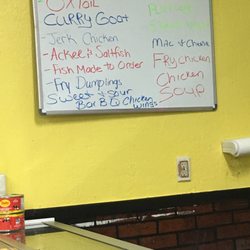 OXTAIL
CURRY Goat
- Jerk Chicken
- Ackee & Saltfish
- Fish Made to Order
- Fry Dumplings
Sweet & Sour
Bar B Q Chicken
wings
Mac & Cheese
Fry Chicken
Chicken
SOUP